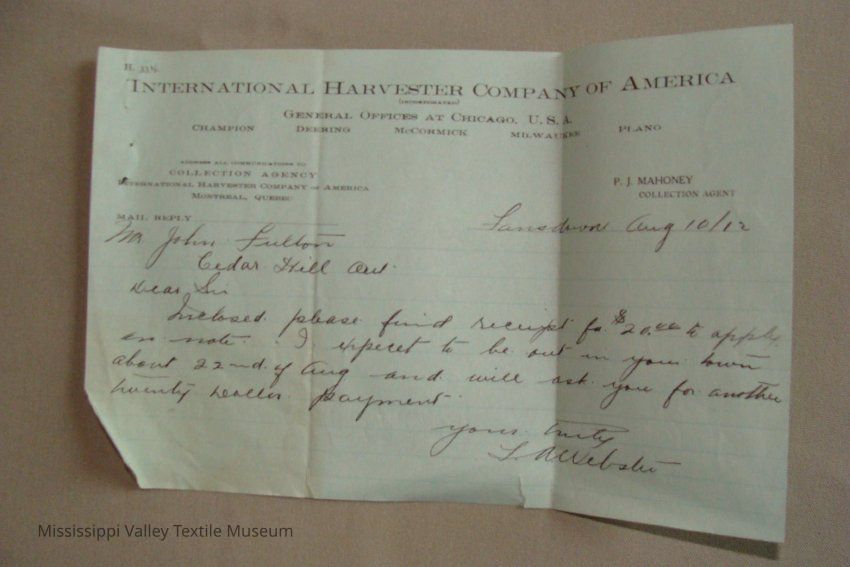 H. 33½
INTERNATIONAL HARVESTER COMPANY OF AMERICA
(INCORPORATED)
GENERAL OFFICES AT CHICAGO, U.S.A.
CHAMPION DEERING McCORMICK MILWAUKEE PLANO
ADDRESS ALL COMMUNICATIONS TO
COLLECTION AGENCY
INTERNATIONAL HARVESTER COMPANY OF AMERICA
MONTREAL, QUEBEC
P. J. MAHONEY
COLLECTION AGENT
MAIL REPLY
Lansdowne Aug 10/12
Mr John Fulton
Cedar Hill Ont.
Dear Sir
Inclosed please find receipt for $20.00 to apply
on note. I expect to be out in your town
about 22nd of Aug and will ask you for another
twenty Dollar payment.
yours truly
S. A Webster
Mississippi Valley Textile Museum